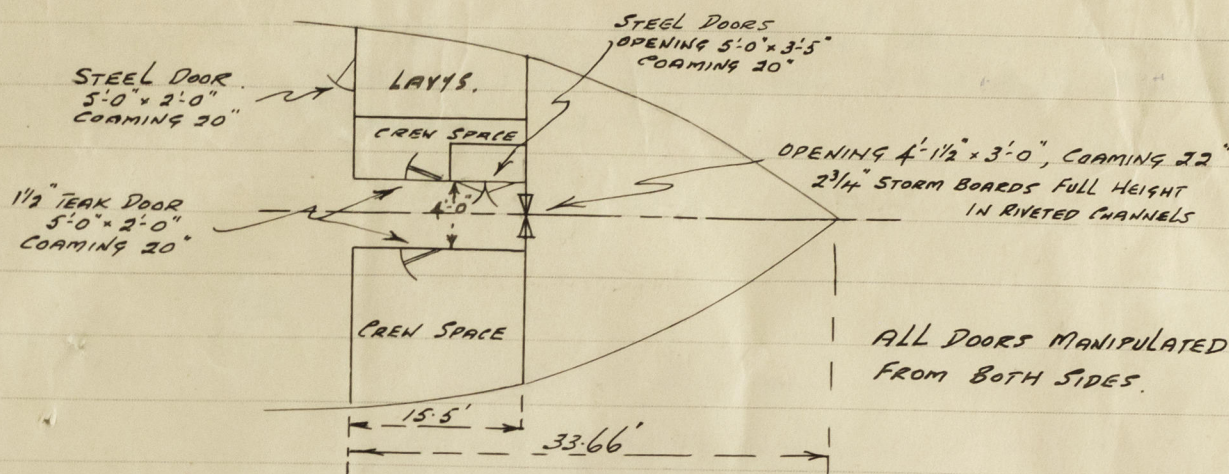 STEEL DOORS
OPENING 5'-0" x 3'-5"
COAMING 20"
STEEL DOOR.
5'-0" x 2'-0"
COAMING 20"
LAVYS.
CREW SPACE
OPENING 4'-1½" x 3'-0", COAMING 22"
2¾" STORM BOARDS FULL HEIGHT
IN RIVETED CHANNELS
1½" TEAK DOOR
5'-0" x 2'-0"
COAMING 20"
4'-0"
CREW SPACE
ALL DOORS MANIPULATED
FROM BOTH SIDES.
15.5'
33.66'